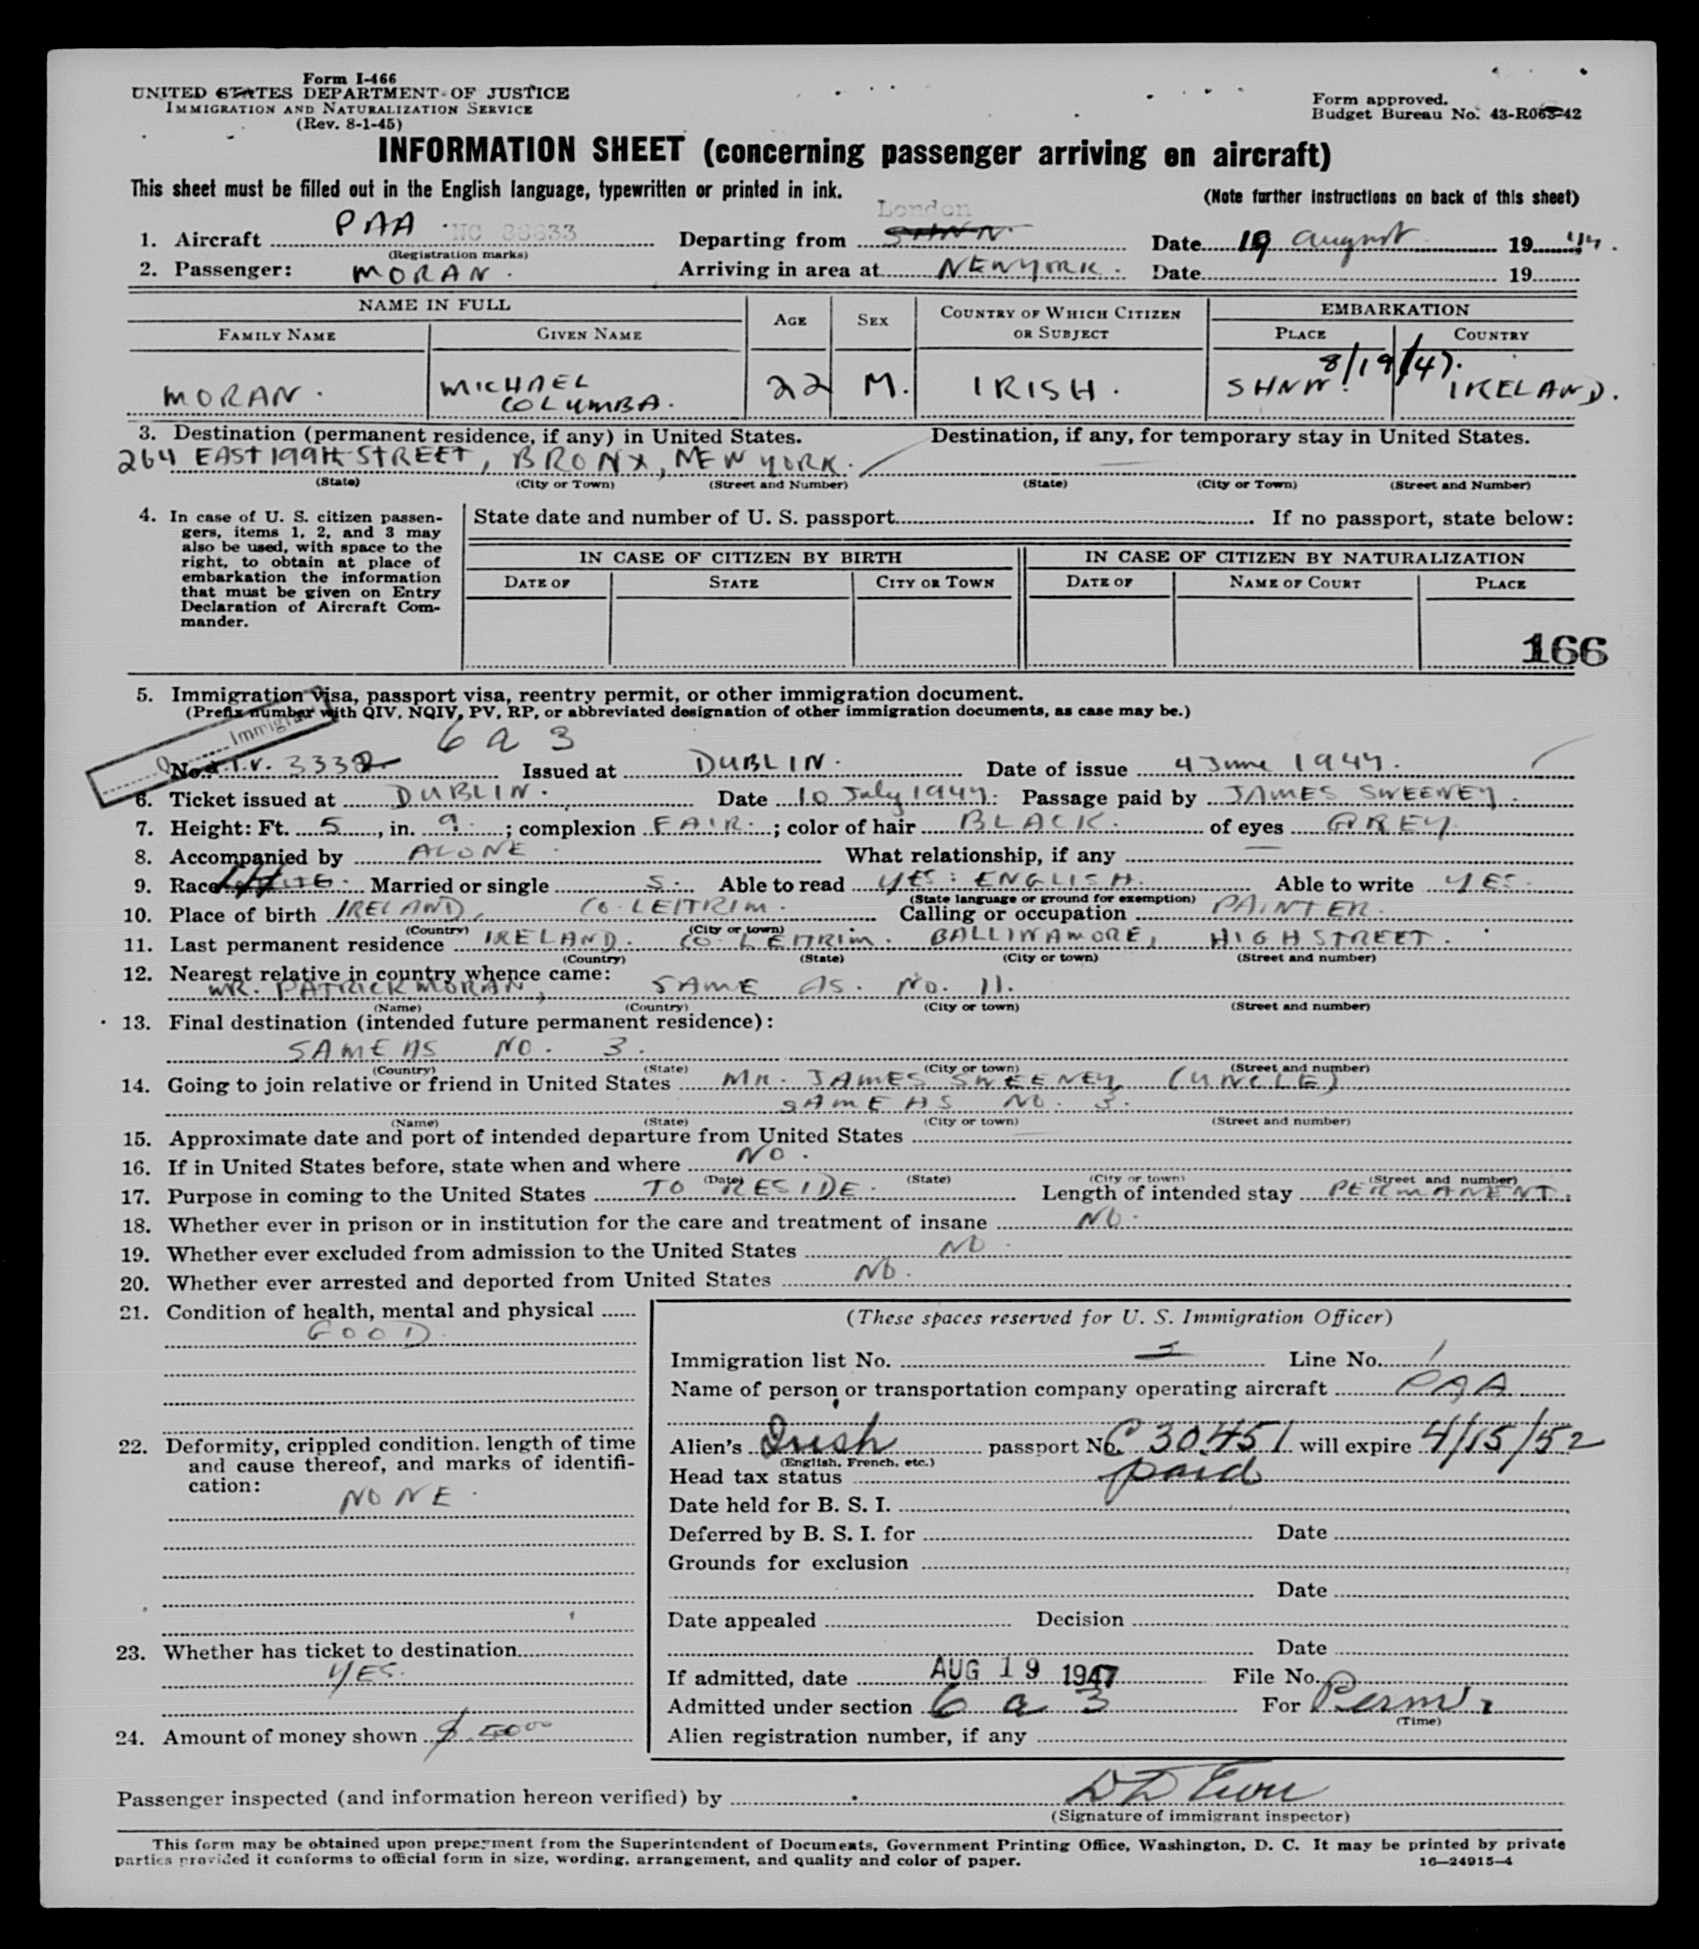 Form I-466
UNITED STATES DEPARTMENT OF JUSTICE
IMMIGRATION AND NATURALIZATION SERVICE
(Rev. 8-1-45)
Form approved.
Budget Bureau No. 43-R063-42
INFORMATION SHEET (concerning passenger arriving on aircraft)
This sheet must be filled out in the English language, typewritten or printed in ink.
(Note further instructions on back of this sheet)
London
1. Aircraft PAA NC 88833 Departing from SHNN Date 19 August 1947.
(Registration marks)
2. Passenger: MORAN. Arriving in area at NEW YORK. Date 19
NAME IN FULL AGE SEX COUNTRY OF WHICH CITIZEN OR SUBJECT EMBARKATION
FAMILY NAME GIVEN NAME PLACE COUNTRY
8/19/47.
MORAN. MICHAEL COLUMBA. 22 M. IRISH. SHNN. IRELAND.
3. Destination (permanent residence, if any) in United States. Destination, if any, for temporary stay in United States.
264 EAST 199th STREET, BRONX, NEW YORK. —
(State) (City or Town) (Street and Number) (State) (City or Town) (Street and Number)
4. In case of U. S. citizen passen-
gers, items 1, 2, and 3 may
also be used, with space to the
right, to obtain at place of
embarkation the information
that must be given on Entry
Declaration of Aircraft Com-
mander.
State date and number of U. S. passport If no passport, state below:
IN CASE OF CITIZEN BY BIRTH IN CASE OF CITIZEN BY NATURALIZATION
DATE OF STATE CITY OR TOWN DATE OF NAME OF COURT PLACE
166
5. Immigration visa, passport visa, reentry permit, or other immigration document.
(Prefix number with QIV, NQIV, PV, RP, or abbreviated designation of other immigration documents, as case may be.)
Q Immigrant
6 a 3
No. I.V. 3332 Issued at DUBLIN. Date of issue 4 June 1947.
6. Ticket issued at DUBLIN. Date 10 July 1947. Passage paid by JAMES SWEENEY.
7. Height: Ft. 5, in. 9.; complexion FAIR.; color of hair BLACK. of eyes GREY.
8. Accompanied by ALONE. What relationship, if any —
9. Race WHITE. Married or single S. Able to read YES: ENGLISH. Able to write YES.
(State language or ground for exemption)
10. Place of birth IRELAND, CO LEITRIM. Calling or occupation PAINTER.
(Country) (City or town)
11. Last permanent residence IRELAND. CO LEITRIM. BALLINAMORE, HIGH STREET.
(Country) (State) (City or town) (Street and number)
12. Nearest relative in country whence came:
MR. PATRICK MORAN, SAME AS. NO. 11.
(Name) (Country) (City or town) (Street and number)
13. Final destination (intended future permanent residence):
SAME AS NO. 3.
(Country) (State) (City or town) (Street and number)
14. Going to join relative or friend in United States MR. JAMES SWEENEY (UNCLE)
SAME AS NO. 3.
(Name) (State) (City or town) (Street and number)
15. Approximate date and port of intended departure from United States —
16. If in United States before, state when and where NO.
(Date) (State) (City or town) (Street and number)
17. Purpose in coming to the United States TO RESIDE. Length of intended stay PERMANENT.
18. Whether ever in prison or in institution for the care and treatment of insane NO.
19. Whether ever excluded from admission to the United States NO.
20. Whether ever arrested and deported from United States NO.
21. Condition of health, mental and physical
GOOD
22. Deformity, crippled condition. length of time
and cause thereof, and marks of identifi-
cation:
NONE.
23. Whether has ticket to destination
YES.
24. Amount of money shown $ 50 00
(These spaces reserved for U. S. Immigration Officer)
Immigration list No. Line No. 1
Name of person or transportation company operating aircraft PAA
Alien's Irish passport No. C 30451 will expire 4/15/52
(English, French, etc.)
Head tax status paid
Date held for B. S. I.
Deferred by B. S. I. for Date
Grounds for exclusion
Date
Date appealed Decision
Date
If admitted, date AUG 19 1947 File No.
Admitted under section 6 a 3 For Perm.
(Time)
Alien registration number, if any
Passenger inspected (and information hereon verified) by
(Signature of immigrant inspector)
This form may be obtained upon prepayment from the Superintendent of Documents, Government Printing Office, Washington, D. C. It may be printed by private
parties provided it conforms to official form in size, wording, arrangement, and quality and color of paper.
16—24915-4